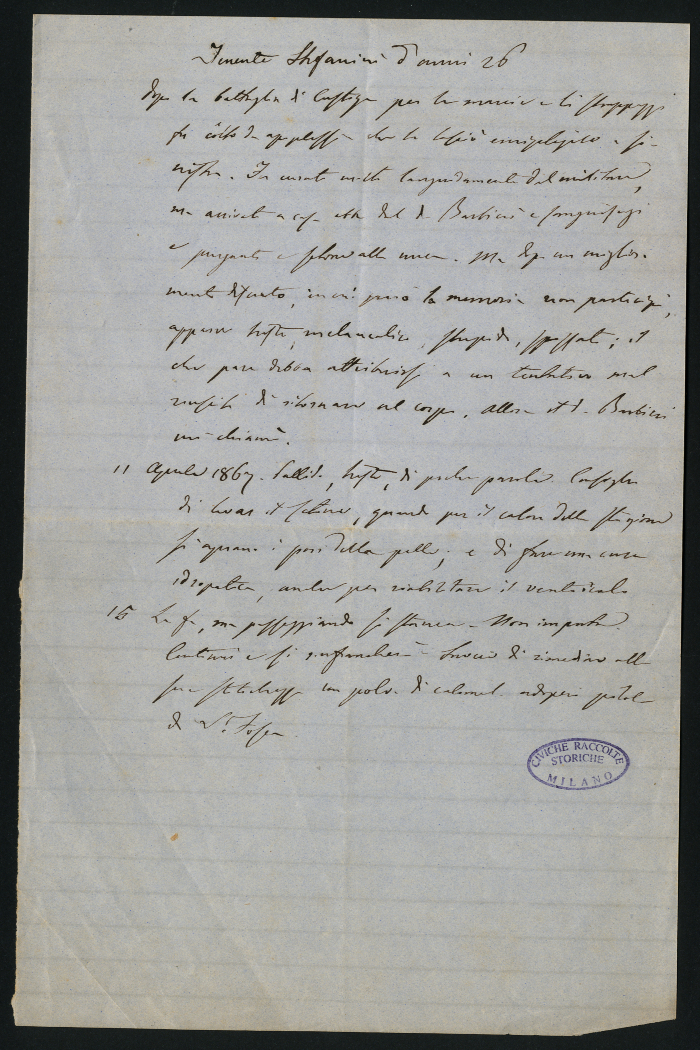 Tenente Stefanini d'anni 26
dopo la battaglia di Custoza per le marcie e li strappazzi
fu colto da apoplessia che lo lasciò emiplegico a si-
nistra. Fu curato molto languidamente dal militare,
ma arrivato a casa ebbe dal d. Barbieri e sanguisugi
e purganti e setone alla nuca. Ma dopo un migliora-
mento discreto, in cui però la memoria non partecipò,
apparve triste, melancolico, stupido, spossato; il
che pare debba attribuirsi a un tentativo mal
riuscito di ritornare al corpo. Allora il d. Barbieri
mi chiamò.
11 Aprile 1867. Pallido, triste, di poche parole. Consiglio
di levar il setone, quando per il calore della stagione
si aprano i pori della pelle; e di fare una cura
idropatica, anche per riabilitare il ventricolo
15 La fa, ma passeggiando si stanca. Non importa.
Continui e si rinfrancherà. di rimediare alla
sua stitichezza un polv. di calomel. adoperi pillole
di
CIVICHE RACCOLTE
STORICHE
MILANO